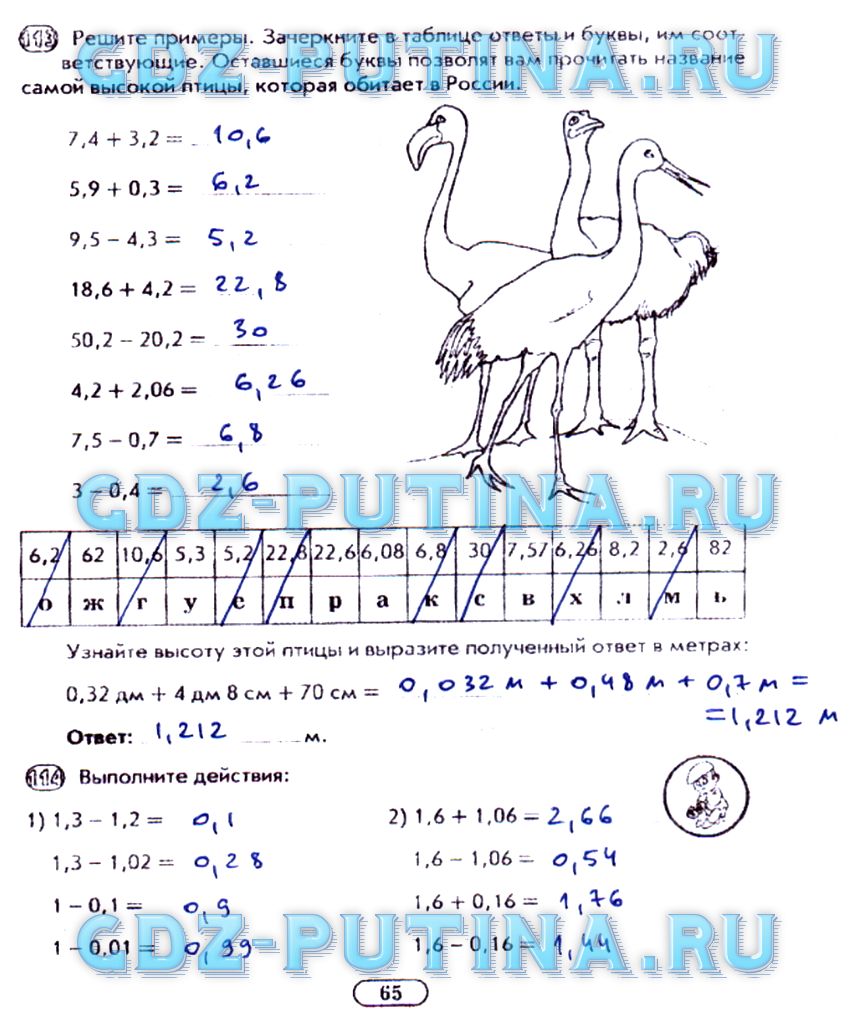 113 Решите примеры. Зачеркните в таблице ответы и буквы, им соот-
ветствующие. Оставшиеся буквы позволят вам прочитать название
самой высокой птицы, которая обитает в России.
GDZ-PUTINA.RU
7,4 + 3,2 = 10,6
5,9 + 0,3 = 6,2
9,5 – 4,3 = 5,2
18,6 + 4,2 = 22,8
50,2 – 20,2 = 30
4,2 + 2,06 = 6,26
7,5 – 0,7 = 6,8
3 – 0,4 = 2,6
GDZ-PUTINA.RU
6,2 62 10,6 5,3 5,2 22,8 22,6 6,08 6,8 30 7,57 6,26 8,2 2,6 82
о ж г у е п р а к с в х л м ь
Узнайте высоту этой птицы и выразите полученный ответ в метрах:
0,32 дм + 4 дм 8 см + 70 см = 0,032 м + 0,48 м + 0,7 м =
= 1,212 м
Ответ: 1,212 м.
114 Выполните действия:
1) 1,3 – 1,2 = 0,1 2) 1,6 + 1,06 = 2,66
1,3 – 1,02 = 0,28 1,6 – 1,06 = 0,54
1 – 0,1 = 0,9 1,6 + 0,16 = 1,76
1 – 0,01 = 0,99 1,6 – 0,16 = 1,44
GDZ-PUTINA.RU
65